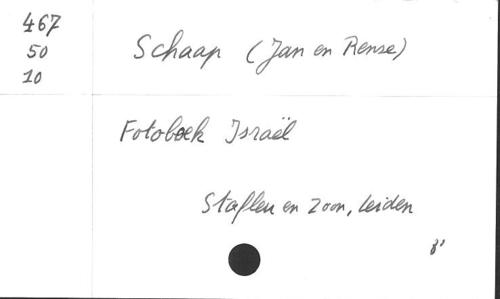 467
50
10
Schaap (Jan en Rense)
Fotoboek Israël
Stafleu en Zoon, Leiden
8°